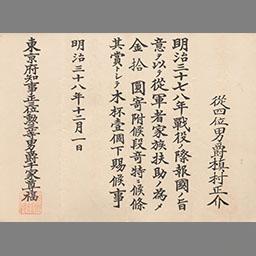 從四位男爵槇村正介
明治三十七八年戰役ノ際報國ノ旨
意ヲ以テ從軍者家族扶助ノ爲メ
金拾圓寄附候段奇特ニ候條
其賞トシテ木杯壹個下賜候事
明治三十八年十二月一日
東京府知事正三位勲三等男爵千家尊福